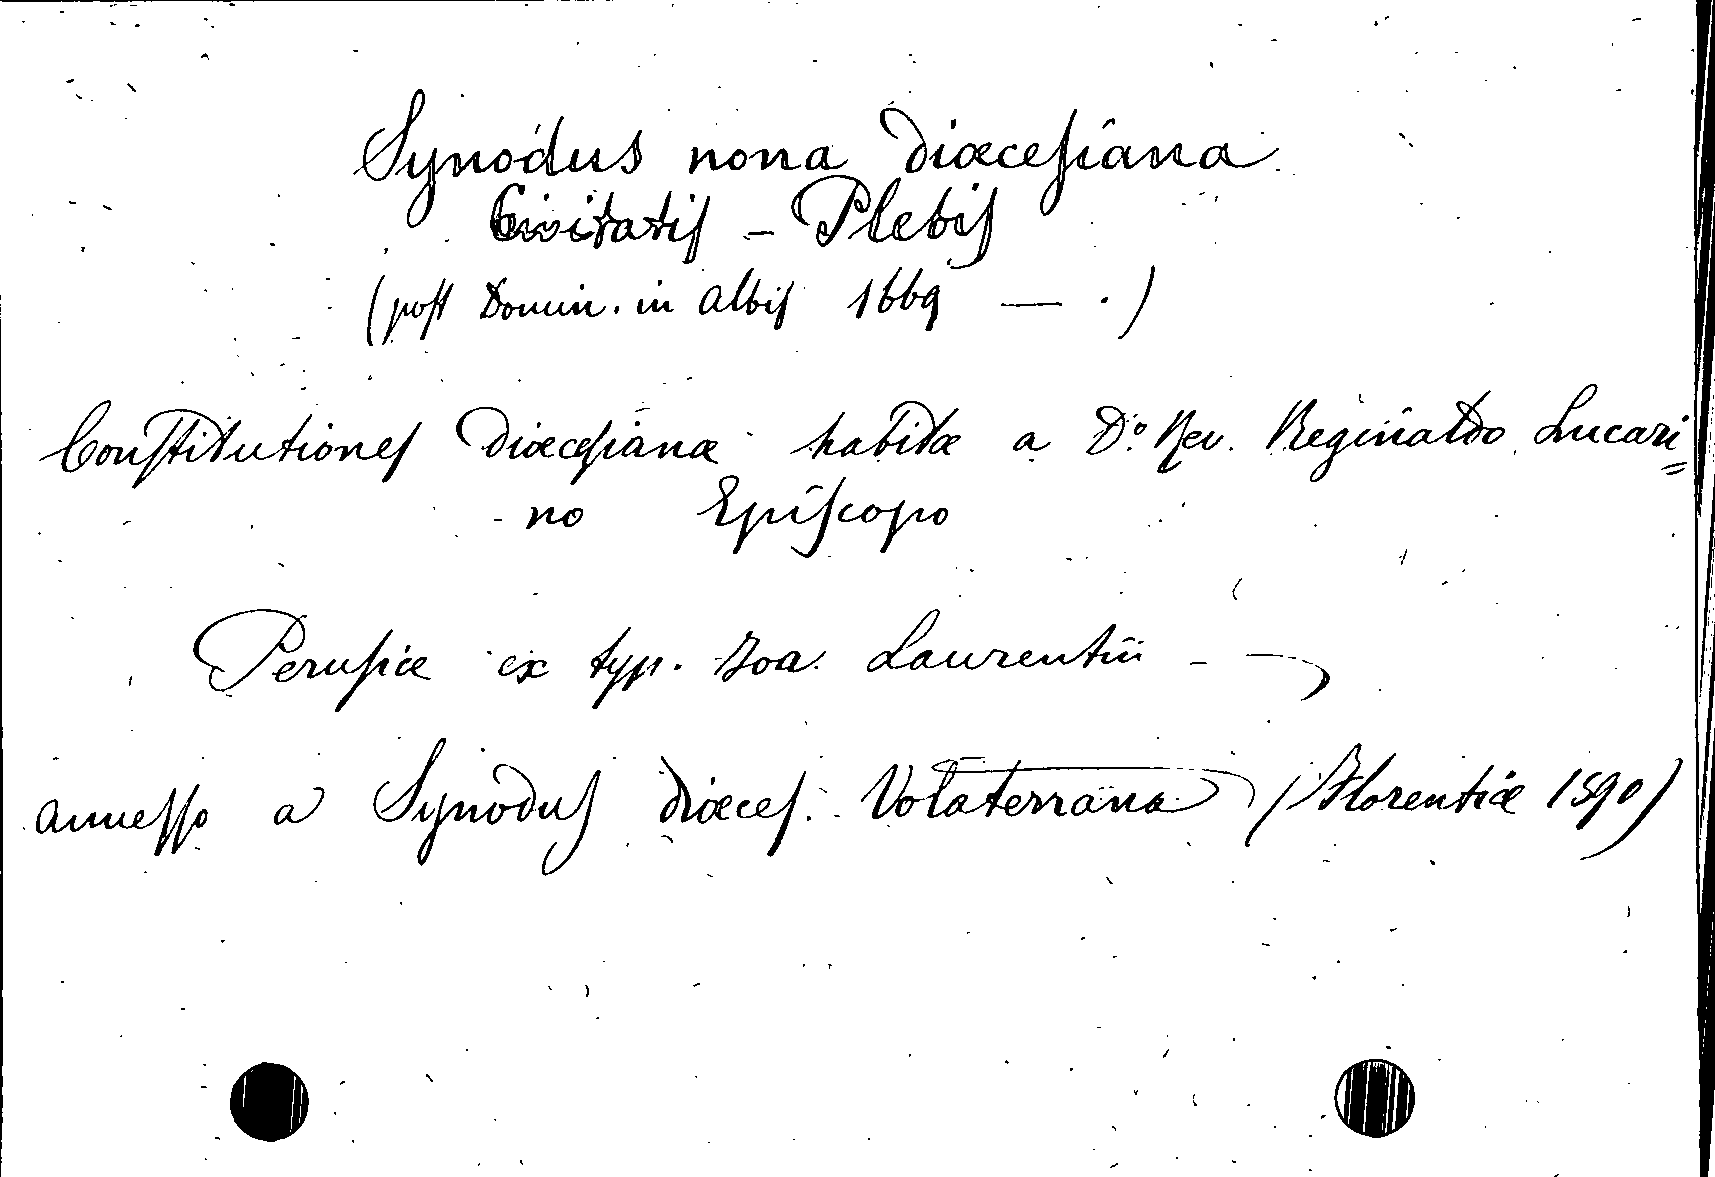 Synodus nona diœcesiana
Civitatis - Plebis
(post Domin. in Albis 1669 — .)
Constitutiones Diœcesianæ habitæ a D.º Rev. Reginaldo Lucari=
no Episcopo
Perusiæ ex typ. Joa. Laurentii -
annesso a Synodus diœces. Volaterrana (Florentiæ 1590)